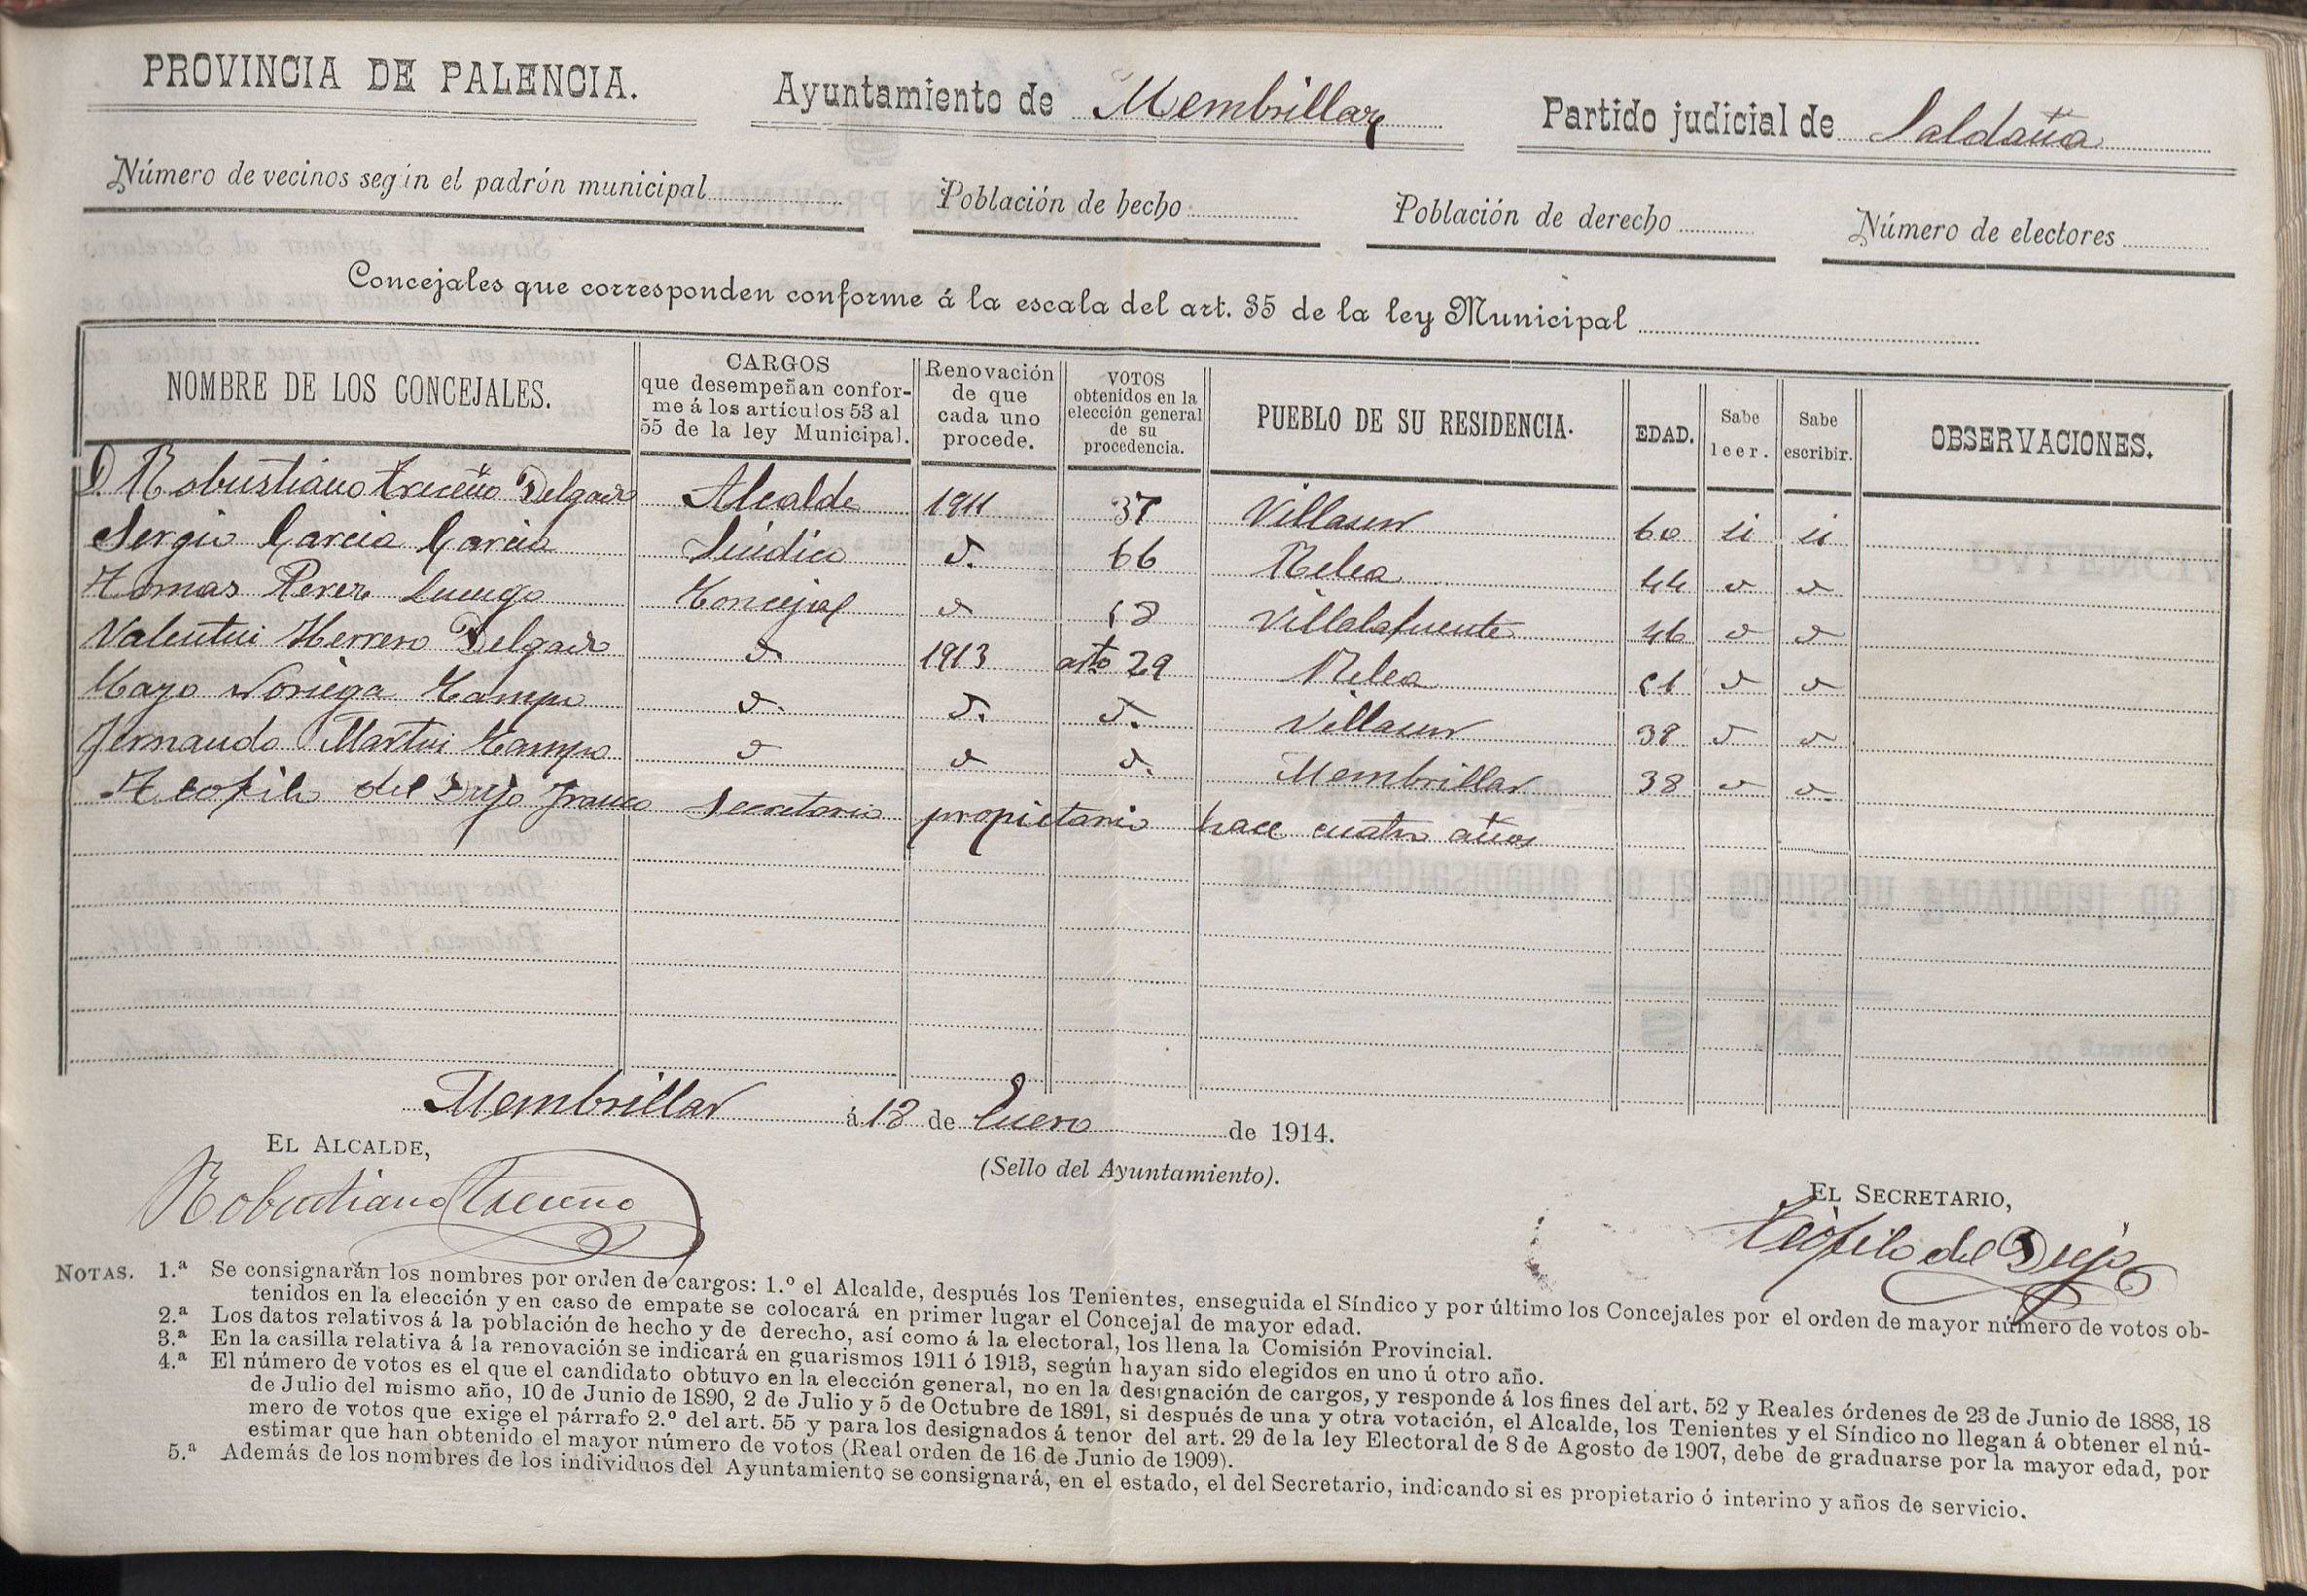 PROVINCIA DE PALENCIA. Ayuntamiento de Membrillar Partido judicial de Saldaña
Número de vecinos según el padrón municipal Población de hecho Población de derecho Número de electores
Concejales que corresponden conforme á la escala del art. 35 de la ley Municipal
NOMBRE DE LOS CONCEJALES. CARGOS que desempeñan confor-me á los artículos 53 al 55 de la ley Municipal. Renovación de que cada uno procede. VOTOS obtenidos en la elección general de su procedencia. PUEBLO DE SU RESIDENCIA. EDAD. Sabe leer. Sabe escribir. OBSERVACIONES.
D. Robustiano Treceño Delgado Alcalde 1911 37 Villasur 60 si si
Sergio Garcia Garcia Síndico d. 66 Relea 44 d d
Tomas Perez Luengo Concejal d 18 Villalafuente 46 d d
Valentin Herrero Delgado d. 1913 arto 29 Relea 51 d d
Mayo Noriega Campo d. d. d. Villasur 38 d d
Fernando Martin Campo d d d. Membrillar 38 d d.
Teofilo del Dujo Franco Secretario propietario hace cuatro años
Membrillar á 18 de Enero de 1914.
EL ALCALDE,
(Sello del Ayuntamiento).
Robustiano Treceño
EL SECRETARIO,
Teófilo del Dujo
NOTAS. 1.ª Se consignarán los nombres por orden de cargos: 1.º el Alcalde, después los Tenientes, enseguida el Síndico y por último los Concejales por el orden de mayor número de votos ob-
tenidos en la elección y en caso de empate se colocará en primer lugar el Concejal de mayor edad.
2.ª Los datos relativos á la población de hecho y de derecho, así como á la electoral, los llena la Comisión Provincial.
3.ª En la casilla relativa á la renovación se indicará en guarismos 1911 ó 1913, según hayan sido elegidos en uno ú otro año.
4.ª El número de votos es el que el candidato obtuvo en la elección general, no en la designación de cargos, y responde á los fines del art. 52 y Reales órdenes de 23 de Junio de 1888, 18
de Julio del mismo año, 10 de Junio de 1890, 2 de Julio y 5 de Octubre de 1891, si después de una y otra votación, el Alcalde, los Tenientes y el Síndico no llegan á obtener el nú-
mero de votos que exige el párrafo 2.º del art. 55 y para los designados á tenor del art. 29 de la ley Electoral de 8 de Agosto de 1907, debe de graduarse por la mayor edad, por
estimar que han obtenido el mayor número de votos (Real orden de 16 de Junio de 1909).
5.ª Además de los nombres de los individuos del Ayuntamiento se consignará, en el estado, el del Secretario, indicando si es propietario ó interino y años de servicio.